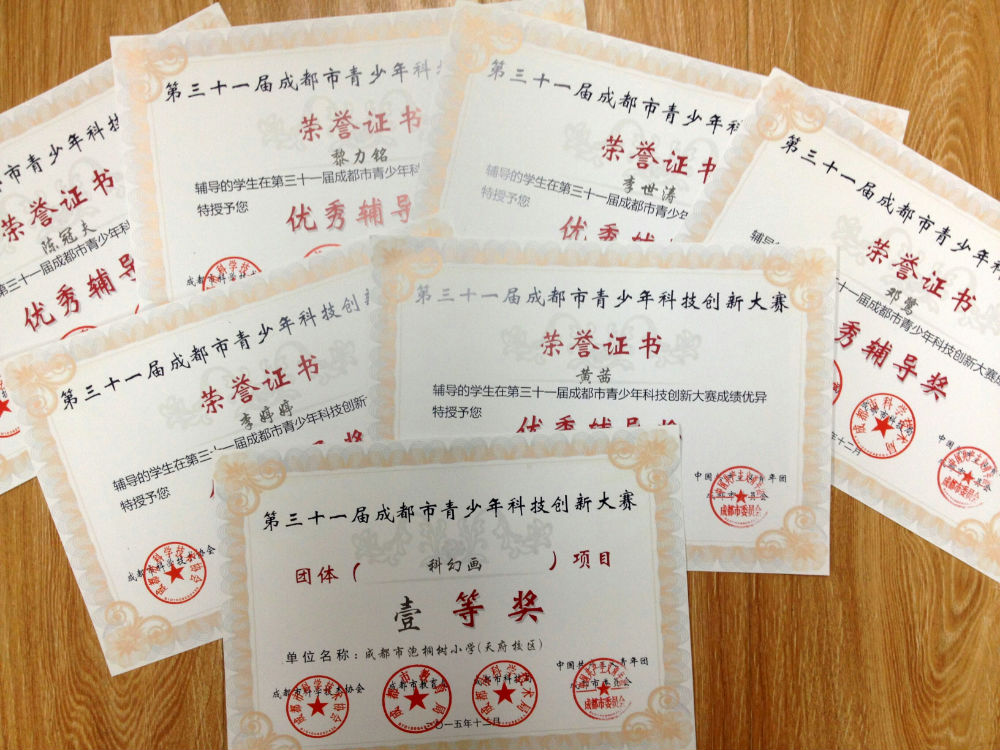 市青少年科技
荣誉证书
陈冠夫
三十一届成都市青少年科
优秀辅导
第三十一届成都市青少年科技
荣誉证书
黎力铭
辅导的学生在第三十一届成都市青少年科
特授予您
优秀辅导
成都市科学技术
第三十一届成都市青少年科
荣誉证书
李世涛
辅导的学生在第三十一届成都市青少年
特授予您
优秀
第三十一届成都市青少年科
荣誉证书
邓鹭
辅导
十一届成都市青少年科技创新大赛
秀辅导奖
成都市科学技术局
年十二月
第三十一届成都市青少年科技创新
荣誉证书
李婷婷
辅导的学生在第三十一届成都市青少年科技创新
特授予您
奖
成都市科学技术协会
第三十一届成都市青少年科技创新大赛
荣誉证书
黄茜
辅导的学生在第三十一届成都市青少年科技创新大赛成绩优异
特授予您
优秀辅导奖
中国共产主义青年团
成都市委员会
第三十一届成都市青少年科技创新大赛
团体(科幻画)项目
壹等奖
单位名称:成都市泡桐树小学(天府校区)
成都市科学技术协会 成都市教育局 成都市科技局 中国共产主义青年团
成都市委员会
二〇一五年十二月